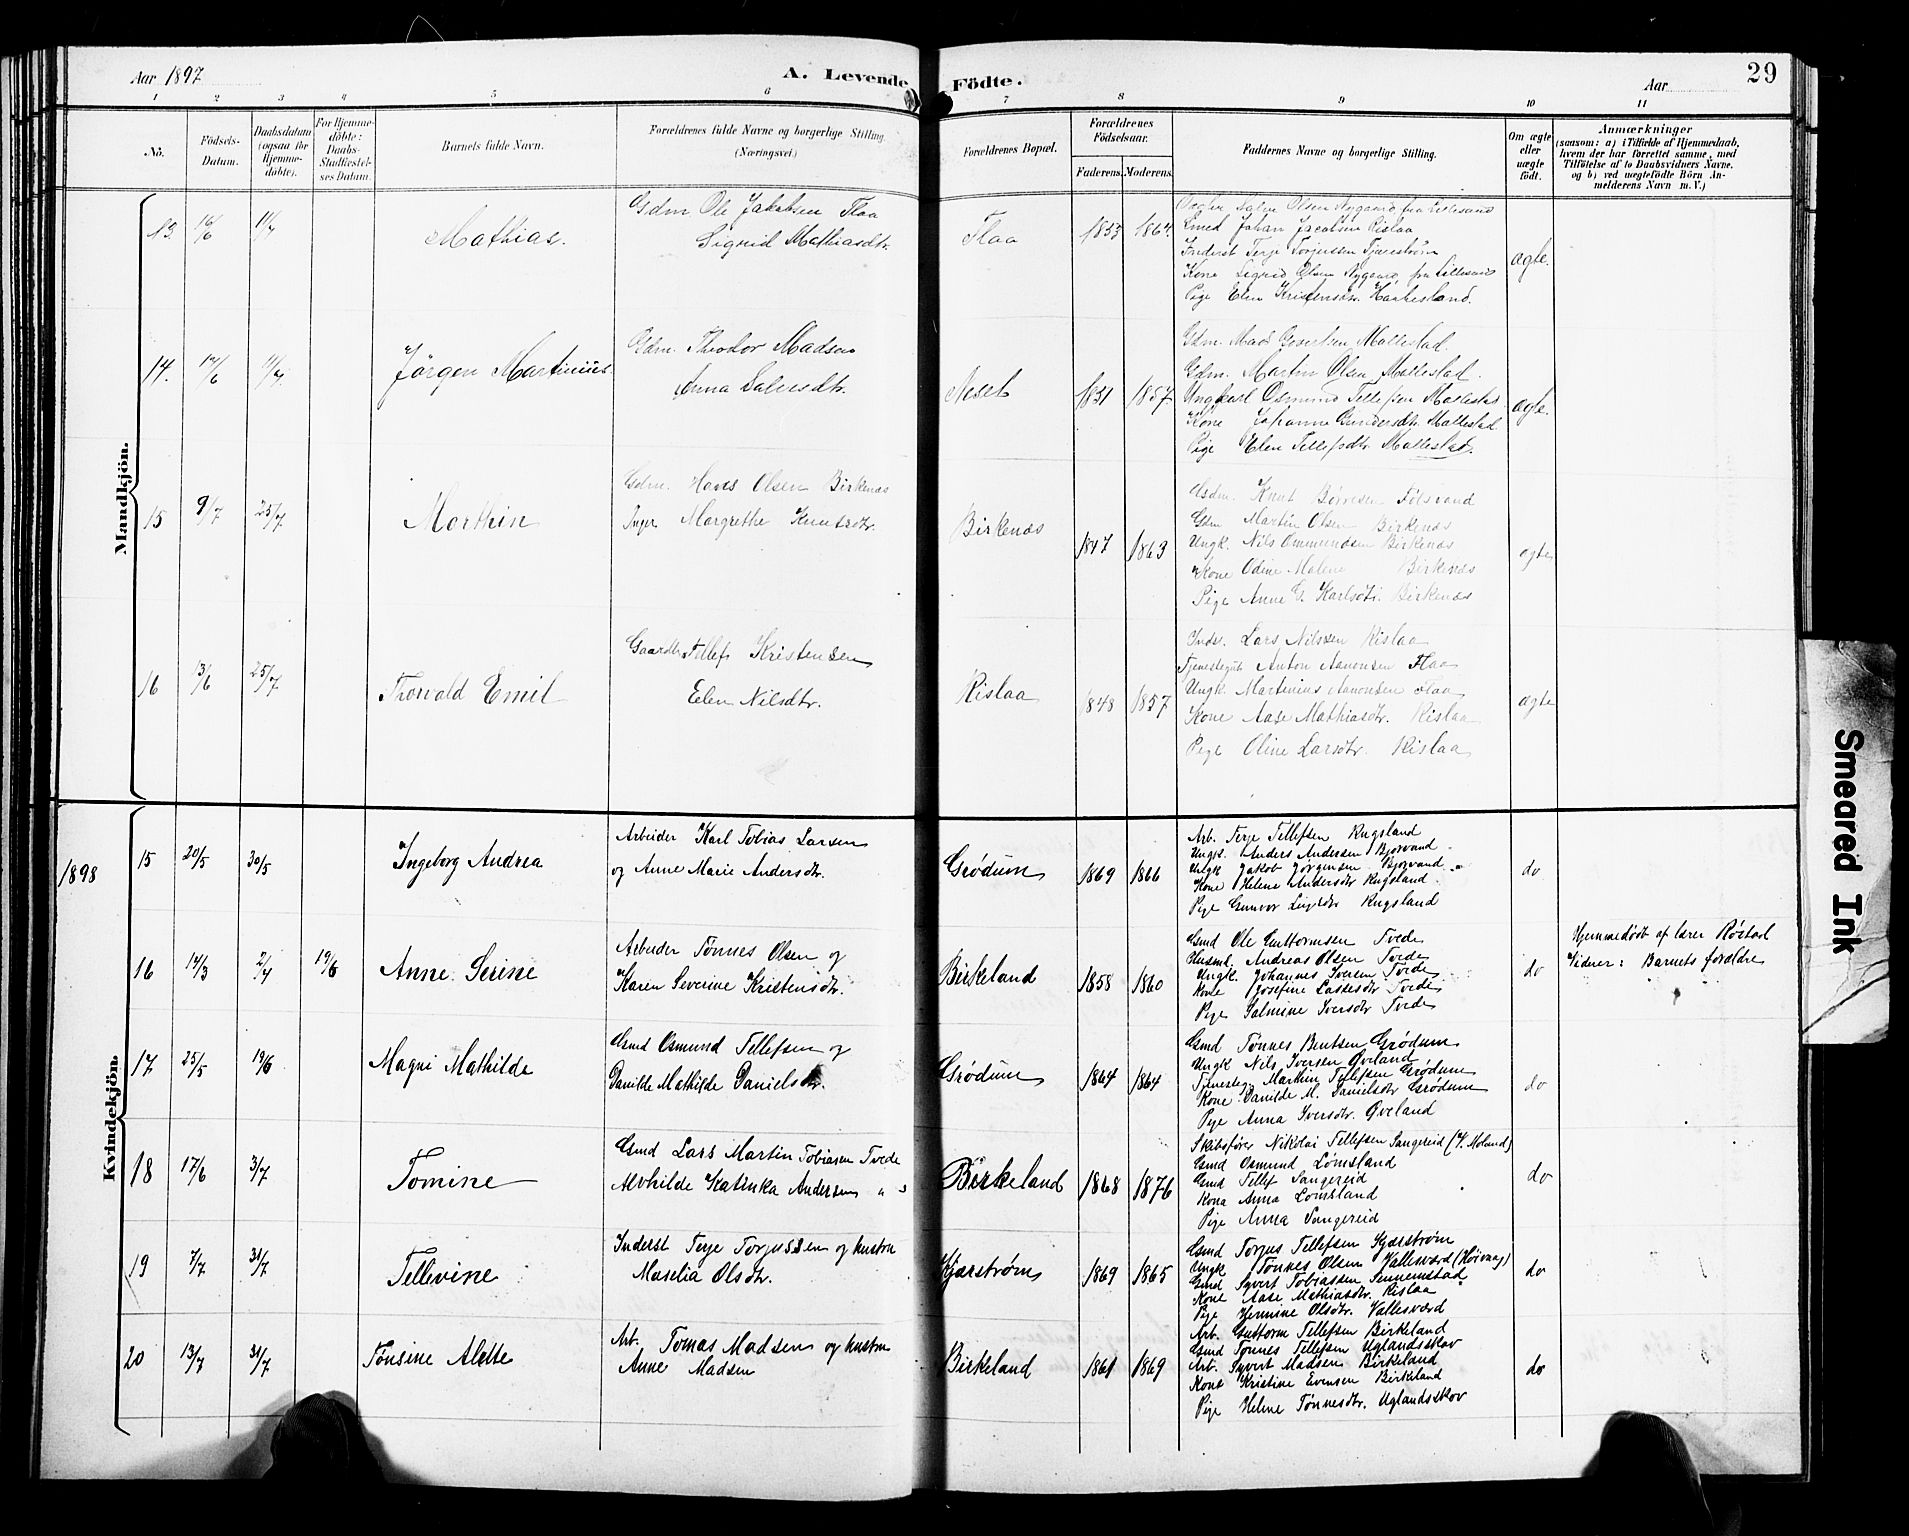 Aar 1897
A. Levende
Födte.
Aar
29
1 2 3 4 5 6 7 8 9 10 11
No.
Födsels-
Datum.
Daabsdatum
(ogsaa for
Hjemme-
döbte).
For Hjemme-
döbte:
Daabs-
Stadfæstel-
ses Datum.
Barnets fulde Navn.
Forældrenes fulde Navne og borgerlige Stilling.
(Næringsvei.)
Forældrenes Bopæl.
Forældrenes
Födselsaar.
Faderens. Moderens.
Faddernes Navne og borgerlige Stilling.
Om ægte
eller
uægte
födt.
Anmærkninger
(saasom: a) i Tilfælde af Hjemmedaab,
hvem der har forrettet samme, med
Tilföielse af to Daabsvidners Navne,
og b) ved uægtefödte Börn An-
melderens Navn m. V.)
Mandkjön.
13. 16/6 11/7
Mathias.
Gdm Ole Jakobsen Flaa
Sigrid Mathiasdtr.
Flaa
1853 1864.
Salve Olsen Nygaard fra Lillesand
Smed Johan Jacobsen Rislaa
Inderst Terje Torjussen Kjærstrøm
Kone Sigrid Olsen Nygaard fra Lillesand
Pige Elen Kristensdtr. Haabesland.
ægte.
14. 17/6 11/7.
Jørgen Martinius.
Gdm. Theodor Madsen
Anna Salvesdtr.
Neset
1831 1857
Gdm. Mads Mollestad.
Gdm. Martin Olsen Mollestad.
Ungkarl Osmund Tellefsen Mollestad
Kone Johanne Gundersdtr. Mollestad
Pige Elen Tellefsdtr. Mollestad.
ægte.
15 9/7 25/7
Morthin
Gdm. Hans Olsen Birkenæs
Inger Margrethe Knutsdtr.
Birkenæs
1847 1863
Gdm. Knut Børresen Følsvand
Gdm Martin Olsen Birkenæs
Ungk. Nils Ommundsen Birkenæs
Kone Odine Malene Birkenæs
Pige Anne G. Karlsdtr. Birkenæs
ægte
16 13/6 25/7
Thorvald Emil
Gaardbr. Tellef Kristensen
Elen Nilsdtr.
Rislaa
1848 1857
Inds. Lars Nilssen Rislaa
Tjenestegut Anton Aanonsen Flaa
Ungk. Martinius Aanonsen Flaa
Kone Aase Mathiasdtr. Rislaa
Pige Oline Larsdtr. Rislaa
ægte
Kvindekjön.
1898
15 20/5 30/5
Ingeborg Andrea
Arbeider Karl Tobias Larsen
og Anne Marie Andersdtr.
Grødum
1869 1866
Arb. Terje Tellefsen Rugsland
Ungk. Anders Andersen Bjorvand
Ungk Jakob Jørgensen Bjorvand
Kone Helene Andersdtr Rugsland
Pige Gunvor Rugsland
do
16 14/3 2/4 19/6
Anne Serine
Arbeider Tønnes Olsen og
Karen Severine Kristensdtr.
Birkeland
1858 1860
Gmd Ole Guttormsen Tvede
Husmd. Andreas Olsen Tvede
Ungk. Johannes Iversen Tvede
Kone Josefine Lassesdtr Tvede
Pige Salmine Iversdtr Tvede
do
Hjemmedøbt af lærer Røstad
Vidner: Barnets forældre
17 25/5 19/6
Magni Mathilde
Gmd Osmund Tellefsen og
Danilde Mathilde Danielsdtr.
Grødum
1864 1864
Gmd Tønnes Bentsen Grødum
Ungk Nils Iversen Øveland
Tjenesteg. Marthin Tellefsen Grødum
Kone Danilde M. Danielsdtr Grødum
Pige Anna Iversdtr. Øveland
do
18 17/6 3/7
Tomine
Gmd Lars Martin Tobiasen Tvede
Alvhilde Katinka Andersen " "
Birkeland
1868 1876
Skibsfører Nikolai Tellefsen Sangereid (V. Moland)
Gmd Osmund Lømsland
Gmd Tellef Sangereid
Kona Anna Lømsland
Pige Anna Sangereid
do
19 7/7 31/7
Tellevine
Inderst Terje Torjussen og hustru
Maselia Olsdtr.
Kjærstrøm
1869 1865
Gmd Torjus Tellefsen Kjærstrøm
Ungk Tønnes Olsen Vallesværd (Høivaag)
Gmd Syvert Tobiassen Sennemstad
Kone Aase Mathiasdtr. Rislaa
Pige Hermine Olsdtr. Vallesværd
do
20 13/7 31/7
Tønsine Alette
Arb. Tomas Madsen og hustru
Anne Madsen
Birkeland
1861 1869
Arb. Guttorm Tellefsen Birkeland
Gmd Tønnes Tellefsen Uglandsskov
Arb. Syvert Madsen Birkeland
Kone Kristine Evensen Birkeland
Pige Helene Tønnesdtr. Uglandsskov
do
Smeared Ink